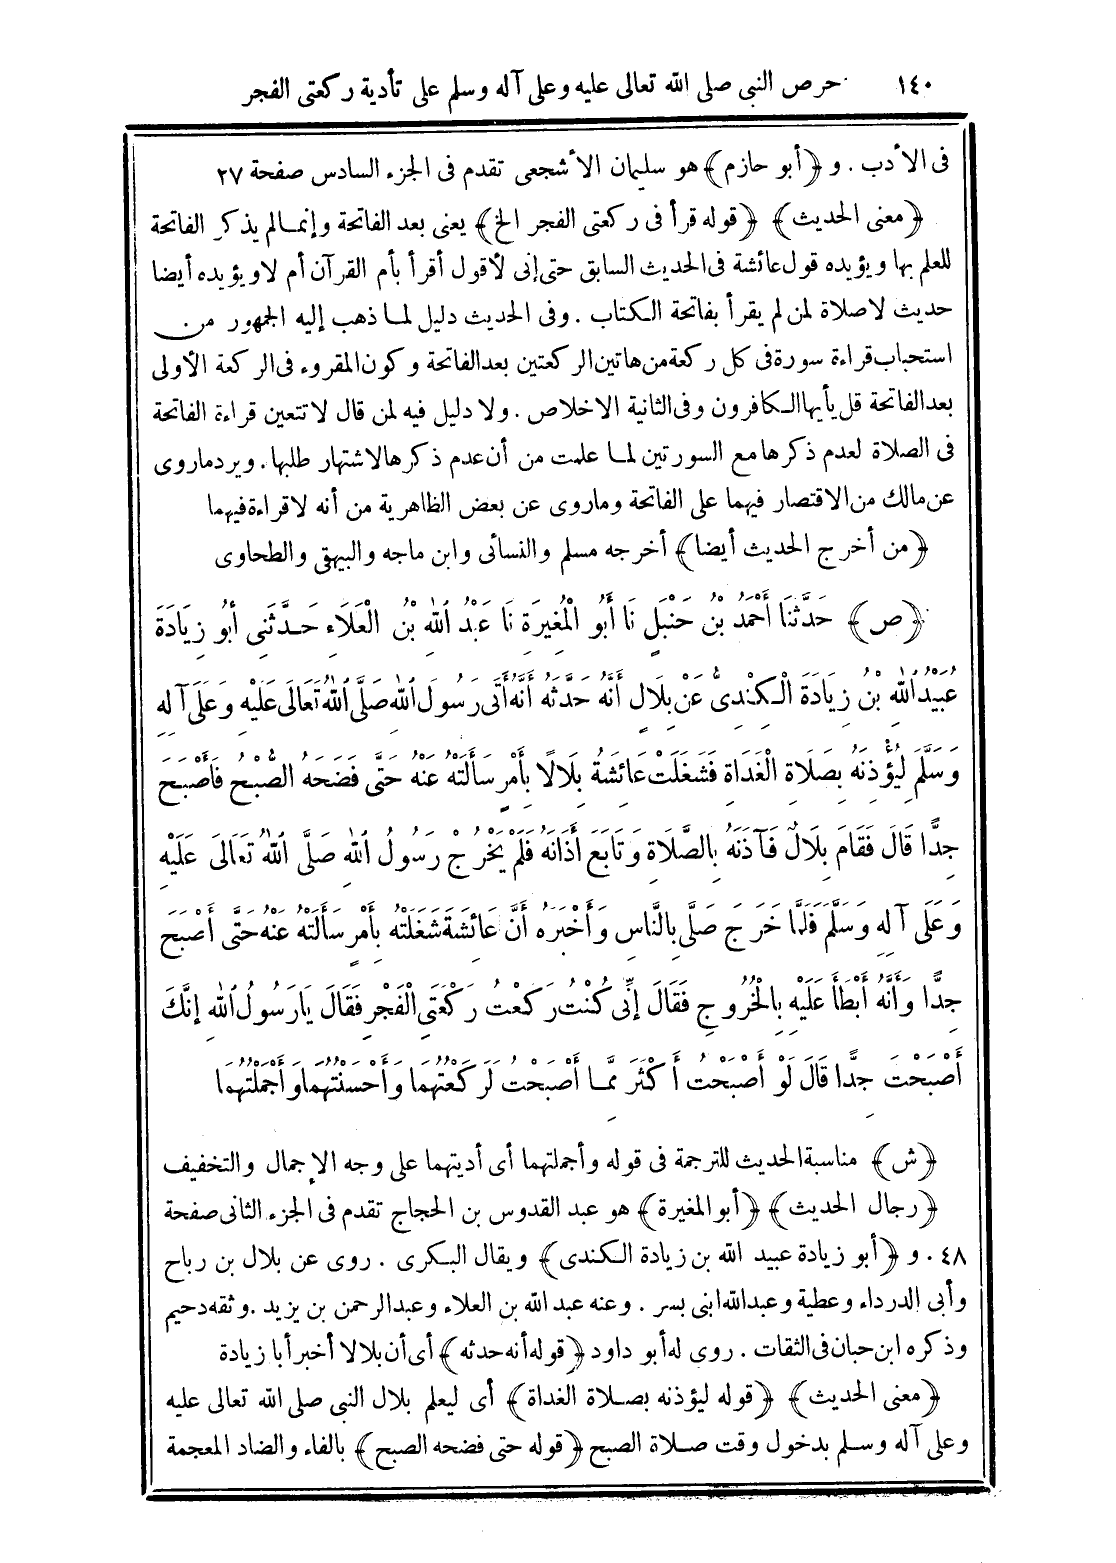 ١٤٠ حرص النبى صلى الله تعالى عليه وعلى آله وسلم على تأدية ركعتى الفجر
فى الأدب . و ﴿أبو حازم﴾ هو سليمان الأشجعى تقدم فى الجزء السادس صفحة ٢٧
﴿معنى الحديث﴾ ﴿قوله قرأ فى ركعتى الفجر الخ﴾ يعنى بعد الفاتحة وإنما لم يذكر الفاتحة
للعلم بها ويؤيده قول عائشة فى الحديث السابق حتى إنى لأقول أقرأ بأم القرآن أم لا ويؤيده أيضا
حديث لاصلاة لمن لم يقرأ بفاتحة الكتاب . وفى الحديث دليل لما ذهب إليه الجمهور من
استحباب قراءة سورة فى كل ركعة من هاتين الركعتين بعد الفاتحة وكون المقروء فى الركعة الأولى
بعد الفاتحة قل يأيها الكافرون وفى الثانية الاخلاص . ولا دليل فيه لمن قال لا تتعين قراءة الفاتحة
فى الصلاة لعدم ذكرها مع السورتين لما علمت من أن عدم ذكرها لاشتهار طلبها . ويرد ماروى
عن مالك من الاقتصار فيهما على الفاتحة وماروى عن بعض الظاهرية من أنه لاقراءة فيهما
﴿من أخرج الحديث أيضا﴾ أخرجه مسلم والنسائى وابن ماجه والبيهقى والطحاوى
﴿ص﴾ حَدَّثَنَا أَحْمَدُ بْنُ حَنْبَلٍ نَا أَبُو الْمُغِيرَةِ نَا عَبْدُ اللهِ بْنُ الْعَلَاءِ حَدَّثَنِى أَبُو زِيَادَةَ
عُبَيْدُ اللهِ بْنُ زِيَادَةَ الْكِنْدِىُّ عَنْ بِلَالٍ أَنَّهُ حَدَّثَهُ أَنَّهُ أَتَى رَسُولَ اللهِ صَلَّى اللهُ تَعَالَى عَلَيْهِ وَعَلَى آلِهِ
وَسَلَّمَ لِيُؤْذِنَهُ بِصَلَاةِ الْغَدَاةِ فَشَغَلَتْ عَائِشَةُ بِلَالًا بِأَمْرٍ سَأَلَتْهُ عَنْهُ حَتَّى فَضَحَهُ الصُّبْحُ فَأَصْبَحَ
جِدًّا قَالَ فَقَامَ بِلَالٌ فَآذَنَهُ بِالصَّلَاةِ وَتَابَعَ أَذَانَهُ فَلَمْ يَخْرُجْ رَسُولُ اللهِ صَلَّى اللهُ تَعَالَى عَلَيْهِ
وَعَلَى آلِهِ وَسَلَّمَ فَلَمَّا خَرَجَ صَلَّى بِالنَّاسِ وَأَخْبَرَهُ أَنَّ عَائِشَةَ شَغَلَتْهُ بِأَمْرٍ سَأَلَتْهُ عَنْهُ حَتَّى أَصْبَحَ
جِدًّا وَأَنَّهُ أَبْطَأَ عَلَيْهِ بِالْخُرُوجِ فَقَالَ إِنِّى كُنْتُ رَكَعْتُ رَكْعَتَىِ الْفَجْرِ فَقَالَ يَارَسُولَ اللهِ إِنَّكَ
أَصْبَحْتَ جِدًّا قَالَ لَوْ أَصْبَحْتُ أَكْثَرَ مِمَّا أَصْبَحْتُ لَرَكَعْتُهُمَا وَأَحْسَنْتُهُمَا وَأَجْمَلْتُهُمَا
﴿ش﴾ مناسبة الحديث للترجمة فى قوله وأجملتهما أى أديتهما على وجه الإجمال والتخفيف
﴿رجال الحديث﴾ ﴿أبو المغيرة﴾ هو عبد القدوس بن الحجاج تقدم فى الجزء الثانى صفحة
٤٨ . و ﴿أبو زيادة عبيد الله بن زيادة الكندى﴾ ويقال البكرى . روى عن بلال بن رباح
وأبى الدرداء وعطية وعبدالله ابنى بسر . وعنه عبد الله بن العلاء وعبدالرحمن بن يزيد . وثقه دحيم
وذكره ابن حبان فى الثقات . روى له أبو داود ﴿قوله أنه حدثه﴾ أى أن بلالا أخبر أبا زيادة
﴿معنى الحديث﴾ ﴿قوله ليؤذنه بصلاة الغداة﴾ أى ليعلم بلال النبى صلى الله تعالى عليه
وعلى آله وسلم بدخول وقت صلاة الصبح ﴿قوله حتى فضحه الصبح﴾ بالفاء والضاد المعجمة